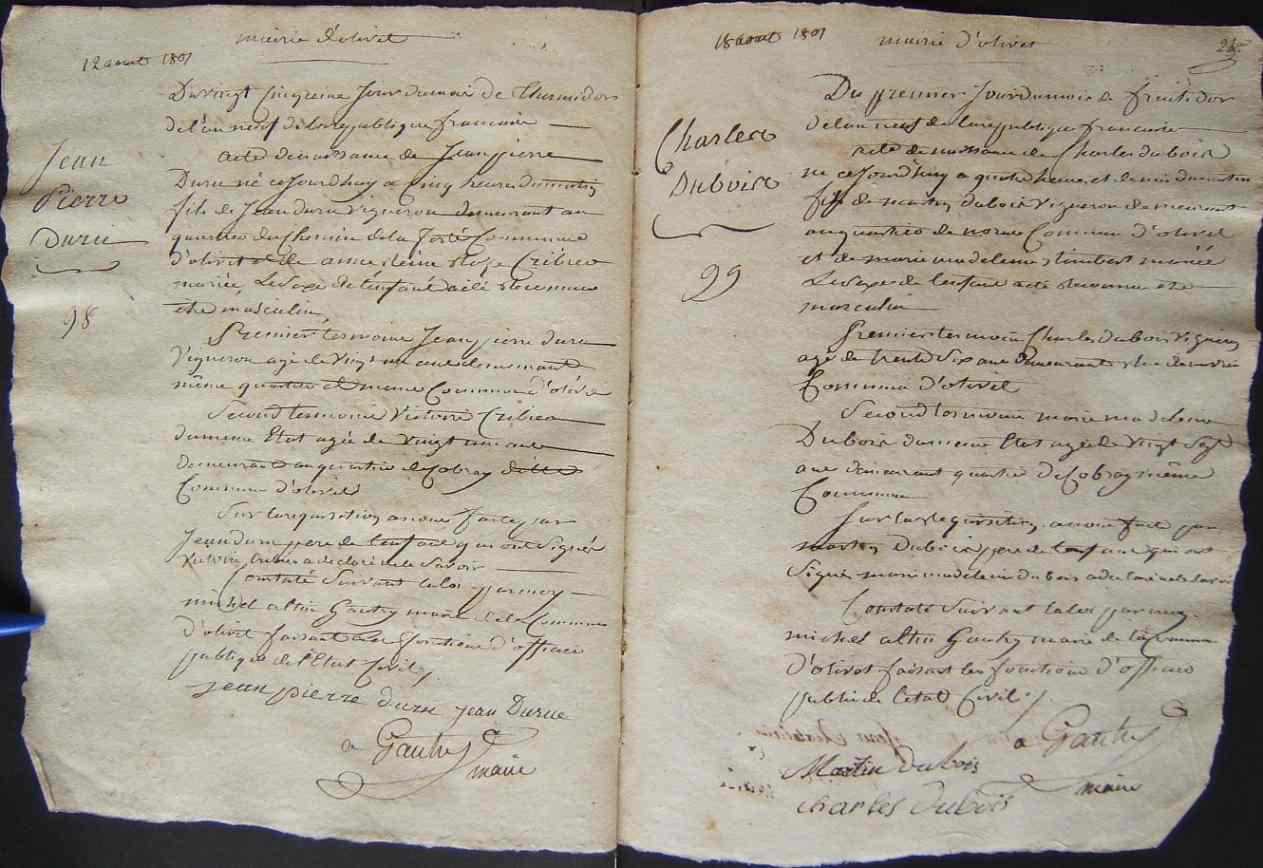 mairie d'olivet
12 aout 1801
Du vingt cinquieme Jour du mois de thermidor
de l'an neuf de la republique francaise
Jean
Pierre
Duru
98
acte de naissance de Jean pierre
Duru né ce Jourdhuy a cinq heures du matin
fils de Jean duru vigneron demeurant au
quartier du Chemin de la ferté Commune
d'olivet et de anne Cribier
mariée, Le Sexe de l'enfant a été reconnu
etre masculin,
Premier temoin Jean pierre duru
Vigneron agé de vingt un ans demeurant
même quartier et meme Commune d'olivet
Second temoin Victoire Cribier
du meme Etat agée de vingt un ans
demeurant au quartier de Cobray ditte
Commune d'olivet
Sur la requisition a nous faite par
Jean duru pere de l'enfant qui ont Signés
Victoire Cribier a declaré ne le Savoir
Constaté Suivant la loi par moy
michel altin Gautry maire de la Commune
d'olivet faisant les fonctions d'officier
publique de l'Etat Civil
jean pierre duru jean Durue
a Gautry
maire
18 aout 1801
mairie d'olivet
Du premier Jour du mois de fruitidor
de l'an neuf de la republique francaise
Charles
Dubois
99
acte de naissance de Charles dubois
né ce Jourdhuy a quatre heures et demie du matin
fils de martin dubois Vigneron demeurant
au quartier de Commune d'olivet
et de marie madeleine mariée
Le Sexe de l'enfant a été reconnu etre
masculin
Premier temoin Charles dubois Vigneron
agé de trente Six ans Demeurant
Commune d'olivet
Second temoin marie madeleine
Dubois du meme Etat agée de Vingt Sept
ans demeurant quartier de Cobray même
Commune
Sur la requisition a nous faite par
martin Dubois pere de l'enfant qui ont
Signés marie madeleine dubois a declaré ne le Savoir
Constaté Suivant la loi par moy
michel altin Gautry maire de la Commune
d'olivet faisant les fonctions d'officier
public de l'etat Civil
a Gautry
Martin dubois
maire
charles dubois